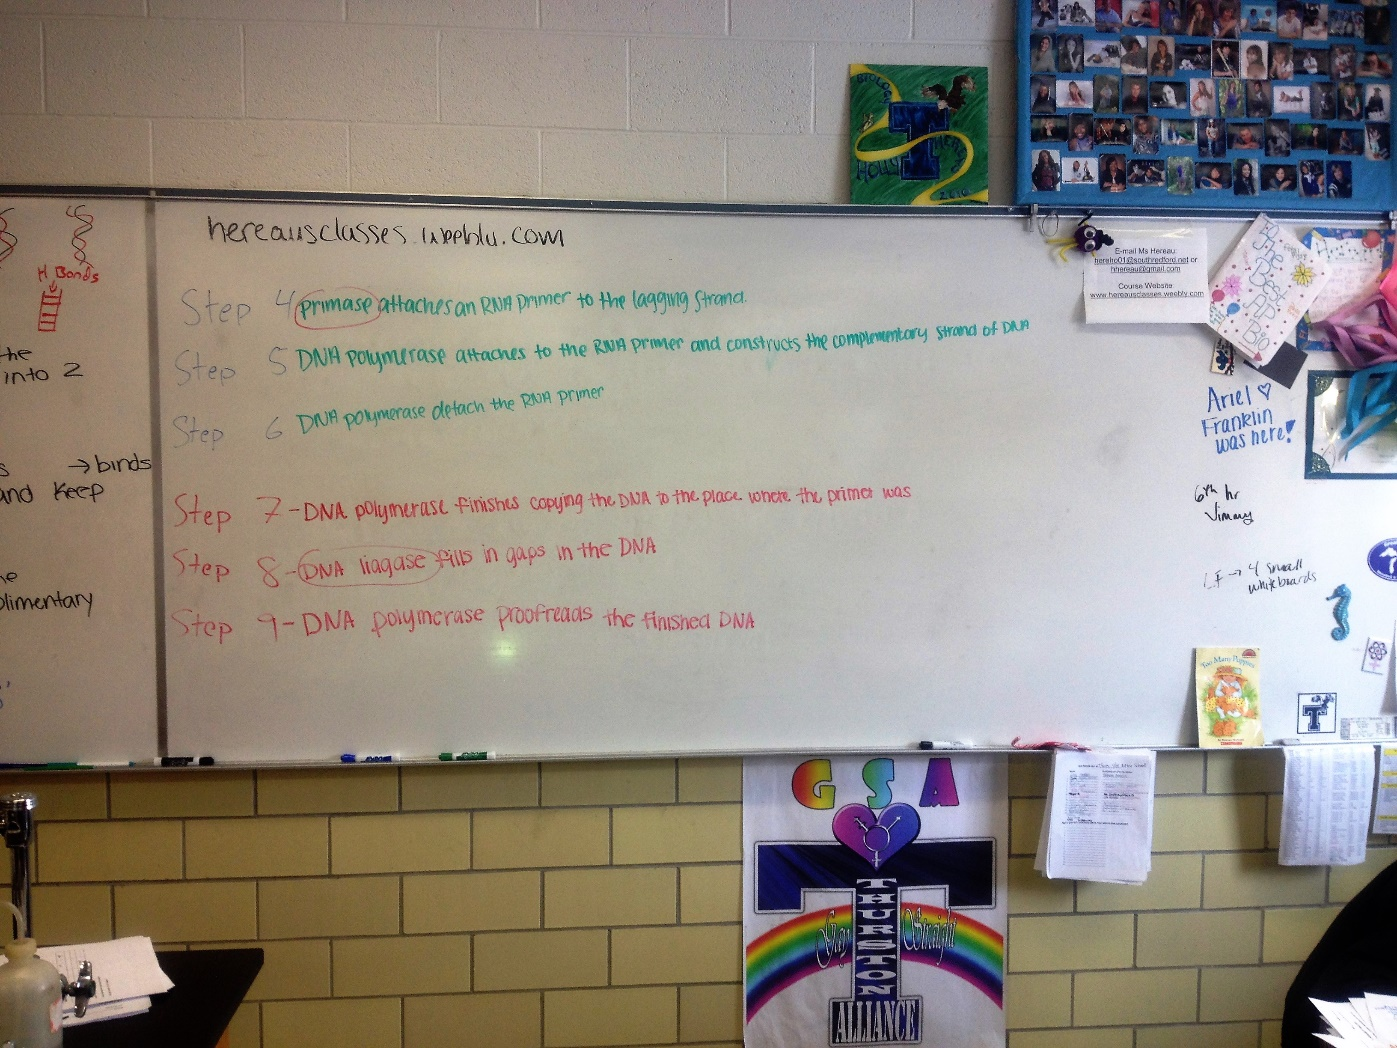 H Bonds
the
into 2
→ binds
and keep
plimentary
hereausclasses.weebly.com
Step 4 primase attaches an RNA primer to the lagging strand.
Step 5 DNA polymerase attaches to the RNA primer and constructs the complementary strand of DNA
Step 6 DNA polymerase detach the RNA primer
Step 7 - DNA polymerase finishes copying the DNA to the place where the primer was
Step 8 - DNA liagase fills in gaps in the DNA
Step 9 - DNA polymerase proofreads the finished DNA
BIOLOGY
T
HOLLY
E-mail Ms Hereau:
hereho01@southredford.net or
hhereau@gmail.com
Course Website
www.hereausclasses.weebly.com
The
Best
AP
Bio
Ariel ♡
Franklin
was here!
6th hr
Jimmy
→ 4 small
whiteboards
Too Many Puppies
T
GSA
THURSTON
Gay Straight
ALLIANCE